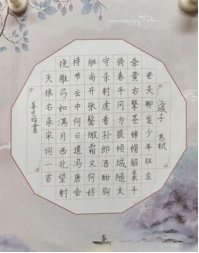 江城子 苏轼
老夫聊发少年狂左
牵黄右擎苍锦帽貂裘千
骑卷平冈为报倾城随太
守亲射虎看孙郎酒酣胸
胆尚开张鬓微霜又何妨
持节云中何日遣冯唐会
挽雕弓如满月西北望射
天狼右录宋词一首